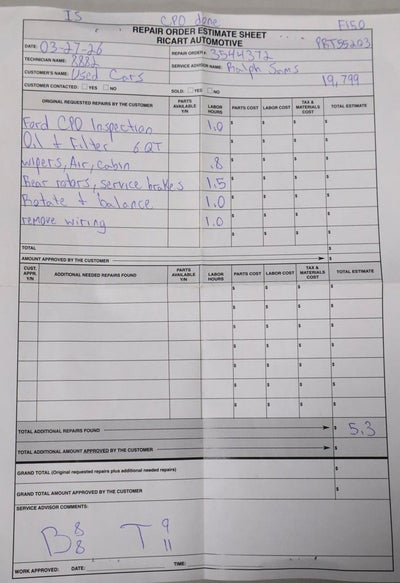 IS CPO done F150
REPAIR ORDER ESTIMATE SHEET
RICART AUTOMOTIVE PBT55203
DATE: 03-27-26 REPAIR ORDER#: 3544372
TECHNICIAN NAME: 8882 SERVICE ADVISOR NAME: Ralph Sams
CUSTOMER'S NAME: Used Cars 19,799
CUSTOMER CONTACTED: YES NO SOLD: YES NO
ORIGINAL REQUESTED REPAIRS BY THE CUSTOMER PARTS AVAILABLE Y/N LABOR HOURS PARTS COST LABOR COST TAX & MATERIALS COST TOTAL ESTIMATE
Ford CPO Inspection 1.0 $ $ $ $
Oil + Filter 6 QT $ $ $ $
wipers, Air, cabin .8 $ $ $ $
Rear rotors, service brakes 1.5 $ $ $ $
Rotate + balance 1.0 $ $ $ $
remove wiring 1.0 $ $ $ $
TOTAL $
AMOUNT APPROVED BY THE CUSTOMER $
CUST. APPR. Y/N ADDITIONAL NEEDED REPAIRS FOUND PARTS AVAILABLE Y/N LABOR HOURS PARTS COST LABOR COST TAX & MATERIALS COST TOTAL ESTIMATE
$ $ $ $
$ $ $ $
$ $ $ $
$ $ $ $
$ $ $ $
$ $ $ $
$ $ $ $
TOTAL ADDITIONAL REPAIRS FOUND $ 5.3
TOTAL ADDITIONAL AMOUNT APPROVED BY THE CUSTOMER $
GRAND TOTAL (Original requested repairs plus additional needed repairs) $
GRAND TOTAL AMOUNT APPROVED BY THE CUSTOMER $
SERVICE ADVISOR COMMENTS:
B 8 8 T 9 11
WORK APPROVED: DATE: TIME: